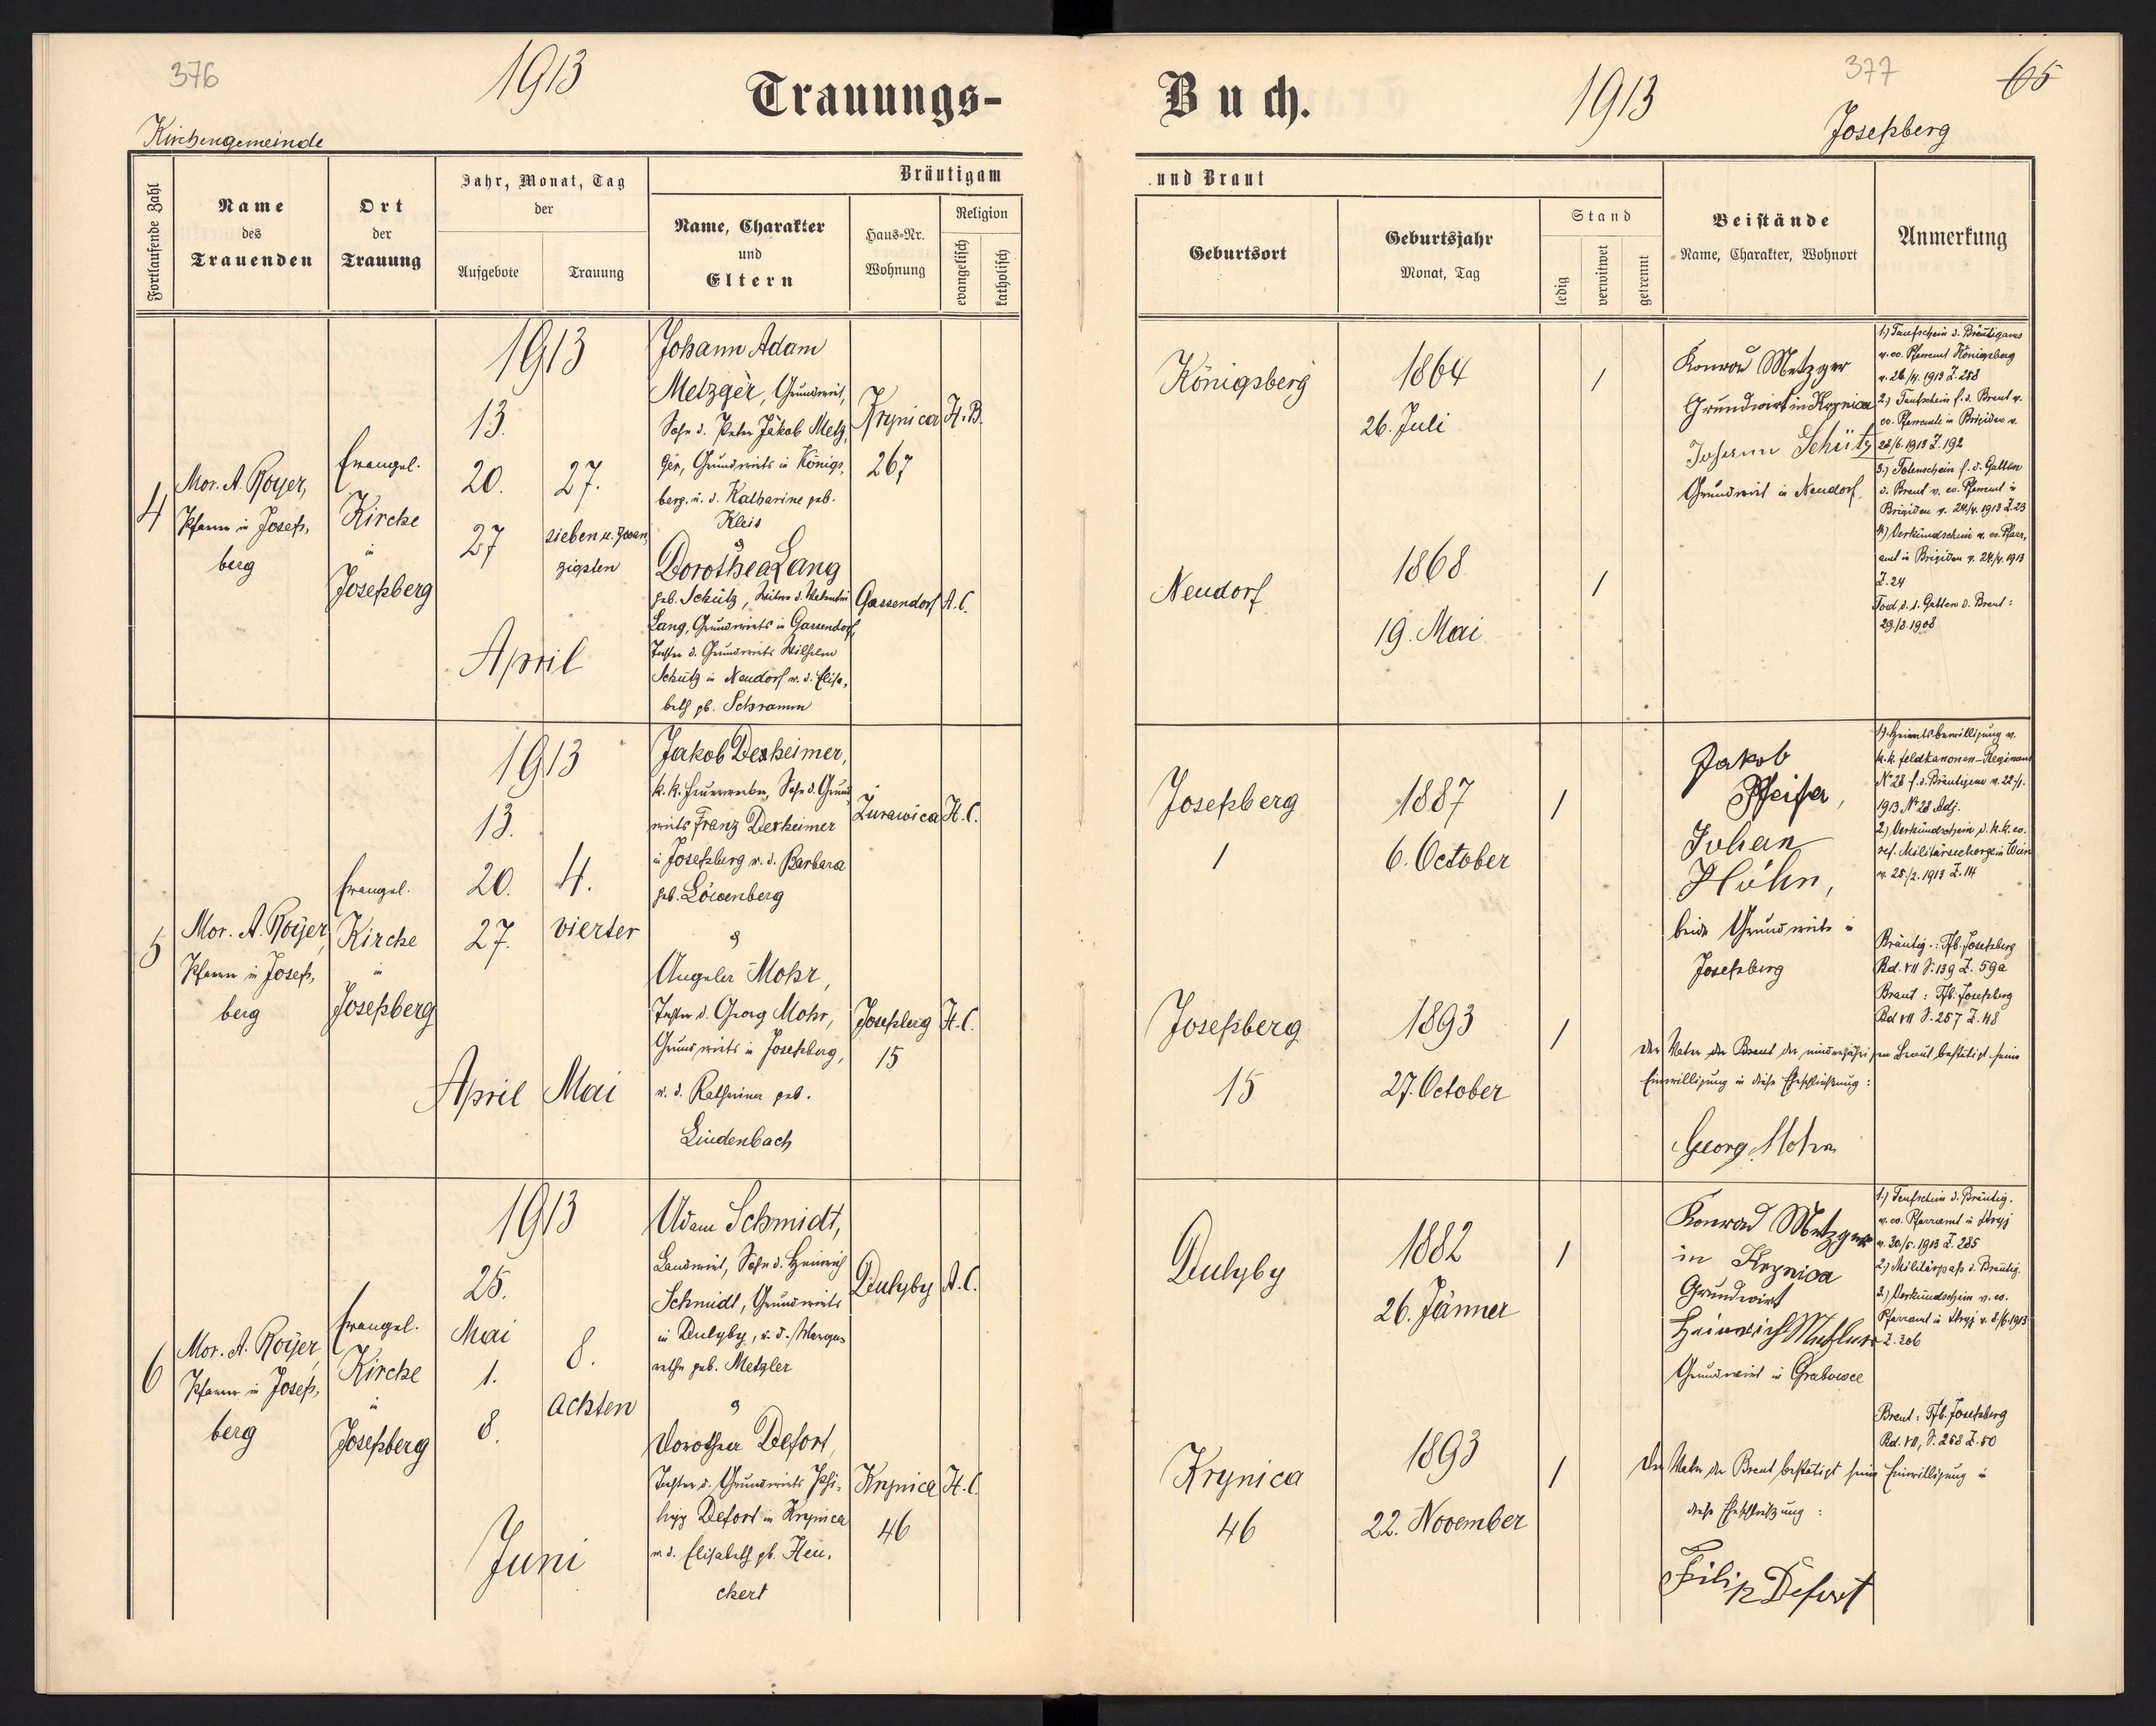 376
1913
Trauungs-
Kirchengemeinde
Fortlaufende Zahl
Name
des
Trauenden
Ort
der
Trauung
Jahr, Monat, Tag
der
Aufgebote
Trauung
Bräutigam
Name, Charakter
und
Eltern
Haus-Nr.
Wohnung
Religion
evangelisch
katholisch
4
Mor. A. Royer,
Pfarrer in Josefs-
berg
Evangel.
Kirche
in
Josefsberg
1913
13.
20.
27
27.
sieben u. zwan
zigsten
April
Johann Adam
Metzger, Grundwirt,
Sohn d. Peter Jakob Metz,
ger, Grundwirts in Königs,
berg, u. d. Katharine geb.
Kleis
&
Dorothea Lang
geb. Schütz, Witwe d. Valentin
Lang, Grundwirts in Gassendorf,
Tochter d. Grundwirts Wilhelm
Schütz in Neudorf u. d. Elisa,
beth gb. Schramm
Krynica
267
H. B.
Gassendorf
A. C.
5
Mor. A. Royer,
Pfarrer in Josefs,
berg
Evangel.
Kirche
in
Josefsberg
1913
13.
20.
27.
April
4.
vierter
Mai
Jakob Derheimer,
k. k. Feuerwerker, Sohn d. Grund
wirts Franz Derheimer
in Josefsberg u. d. Barbara
geb. Löwenberg
&
Angela Mohr,
Tochter d. Georg Mohr,
Grundwirts in Josefsberg,
u. d. Katharina geb.
Lindenbach
Żurawica
H. C.
Josefsberg
15
H. C.
6
Mor. A. Royer,
Pfarrer in Josefs,
berg
Evangel.
Kirche
in
Josefsberg
1913
25.
Mai
1.
8.
8.
achten
Juni
Adam Schmidt,
Landwirt, Sohn d. Heinrich
Schmidt, Grundwirts
in Dulyby, u. d. Marga
rethe geb. Metzler
&
Dorothea Defort,
Tochter d. Grundwirts Phi-
lipp Defort in Krynica
u. d. Elisabeth gb. Heu,
ckert
Dulyby
A. C.
Krynica
46
H. C.
Buch.
1913
377
65
Josefsberg
und Braut
Geburtsort
Geburtsjahr
Monat, Tag
Stand
ledig
verwitwet
getrennt
Beistände
Name, Charakter, Wohnort
Anmerkung
Königsberg
1864
26. Juli
/
Neudorf
1868
19. Mai
/
Konrad Metzger
Grundwirt in Krynica
Johann Schütz
Grundwirt in Neudorf,
1.) Taufschein d. Bräutigams
v. ev. Pfarramt Königsberg
v. 26./4. 1913 Z. 258
2.) Taufschein f. d. Braut v.
ev. Pfarramte in Brigidau v.
Z. 192
3.) Totenschein f. d. Gatten
d. Braut v. ev. Pfarramt in
Brigidau v. 24./4. 1913 Z. 23
4.) Verkündschein v. ev. Pfarr,
amt in Brigidau v. 24./4. 1913
Z. 24
Tod d. 1. Gatten d. Braut:
29./8. 1908
Josefsberg
1
1887
6. October
/
Josefsberg
15
1893
27. October
/
Jakob
Pfeifer,
Johan
Höhn,
beide Grundwirte in
Josefsberg
1.) Heiratsbewilligung v.
k. k. Feldkanonen-Regiment
No 28 f. d. Bräutigam v.
1913 No 28 Adj.
2.) Verkündschein d. k. k. ev.
ref. Militärseelsorge in Wien
v. 25./2. 1913 Z. 14
Bräutig.: Tfb. Josefsberg
Bd. VII S. 139 Z. 59a
Braut: Tfb. Josefsberg
Bd VII S. 257 Z. 48
Der Vater der Braut der minderjährigen Braut bestätigt seine
Einwilligung in diese Eheschließung:
Georg Mohr
Dulyby
1882
26. Jänner
/
Krynica
46
1893
22. November
/
Konrad Metzger
in Krynica
Grundwirt
Heinrich
Grundwirt in Grabowce
1.) Taufschein d. Bräutig.
v. ev. Pfarramt in Stryj
v. 30./5. 1913 Z. 285
2.) Militärpaß d. Bräutig.
3.) Verkündschein v. ev.
Pfarramt in Stryj v. 8./6. 1913
Z. 306
Braut: Tfb. Josefsberg
Bd. VII, S. 258 Z. 50
Der Vater der Braut bestätigt seine Einwilligung in
diese Eheschließung:
Filip Defort